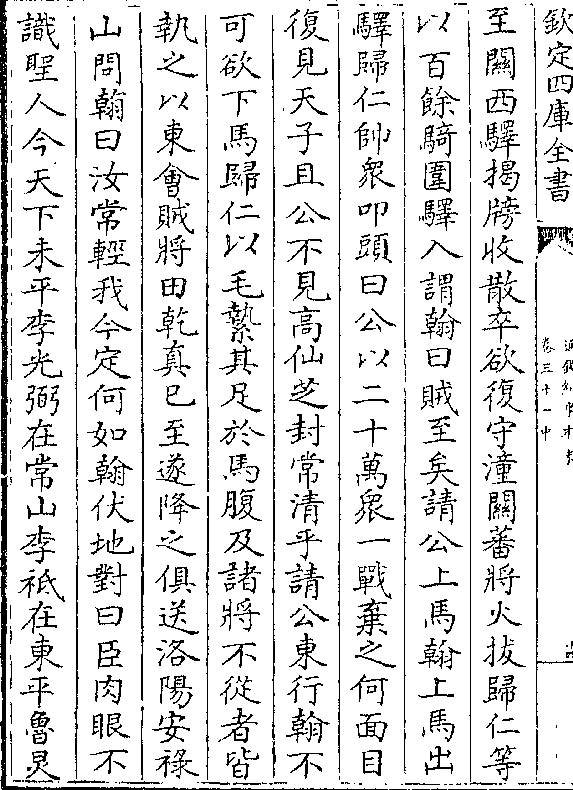 欽定四庫全書
卷三十一中
至關西驛揭牓收散卒欲復守潼關蕃將火拔歸仁等
以百餘騎圍驛入謂翰曰賊至矣請公上馬翰上馬出
驛歸仁帥衆叩頭曰公以二十萬衆一戰棄之何面目
復見天子且公不見高仙芝封常清乎請公東行翰不
可欲下馬歸仁以毛縶其足於馬腹及諸將不從者皆
執之以東會賊將田乾真已至遂降之俱送洛陽安祿
山問翰曰汝常輕我今定何如翰伏地對曰臣肉眼不
識聖人今天下未平李光弼在常山李祗在東平魯炅